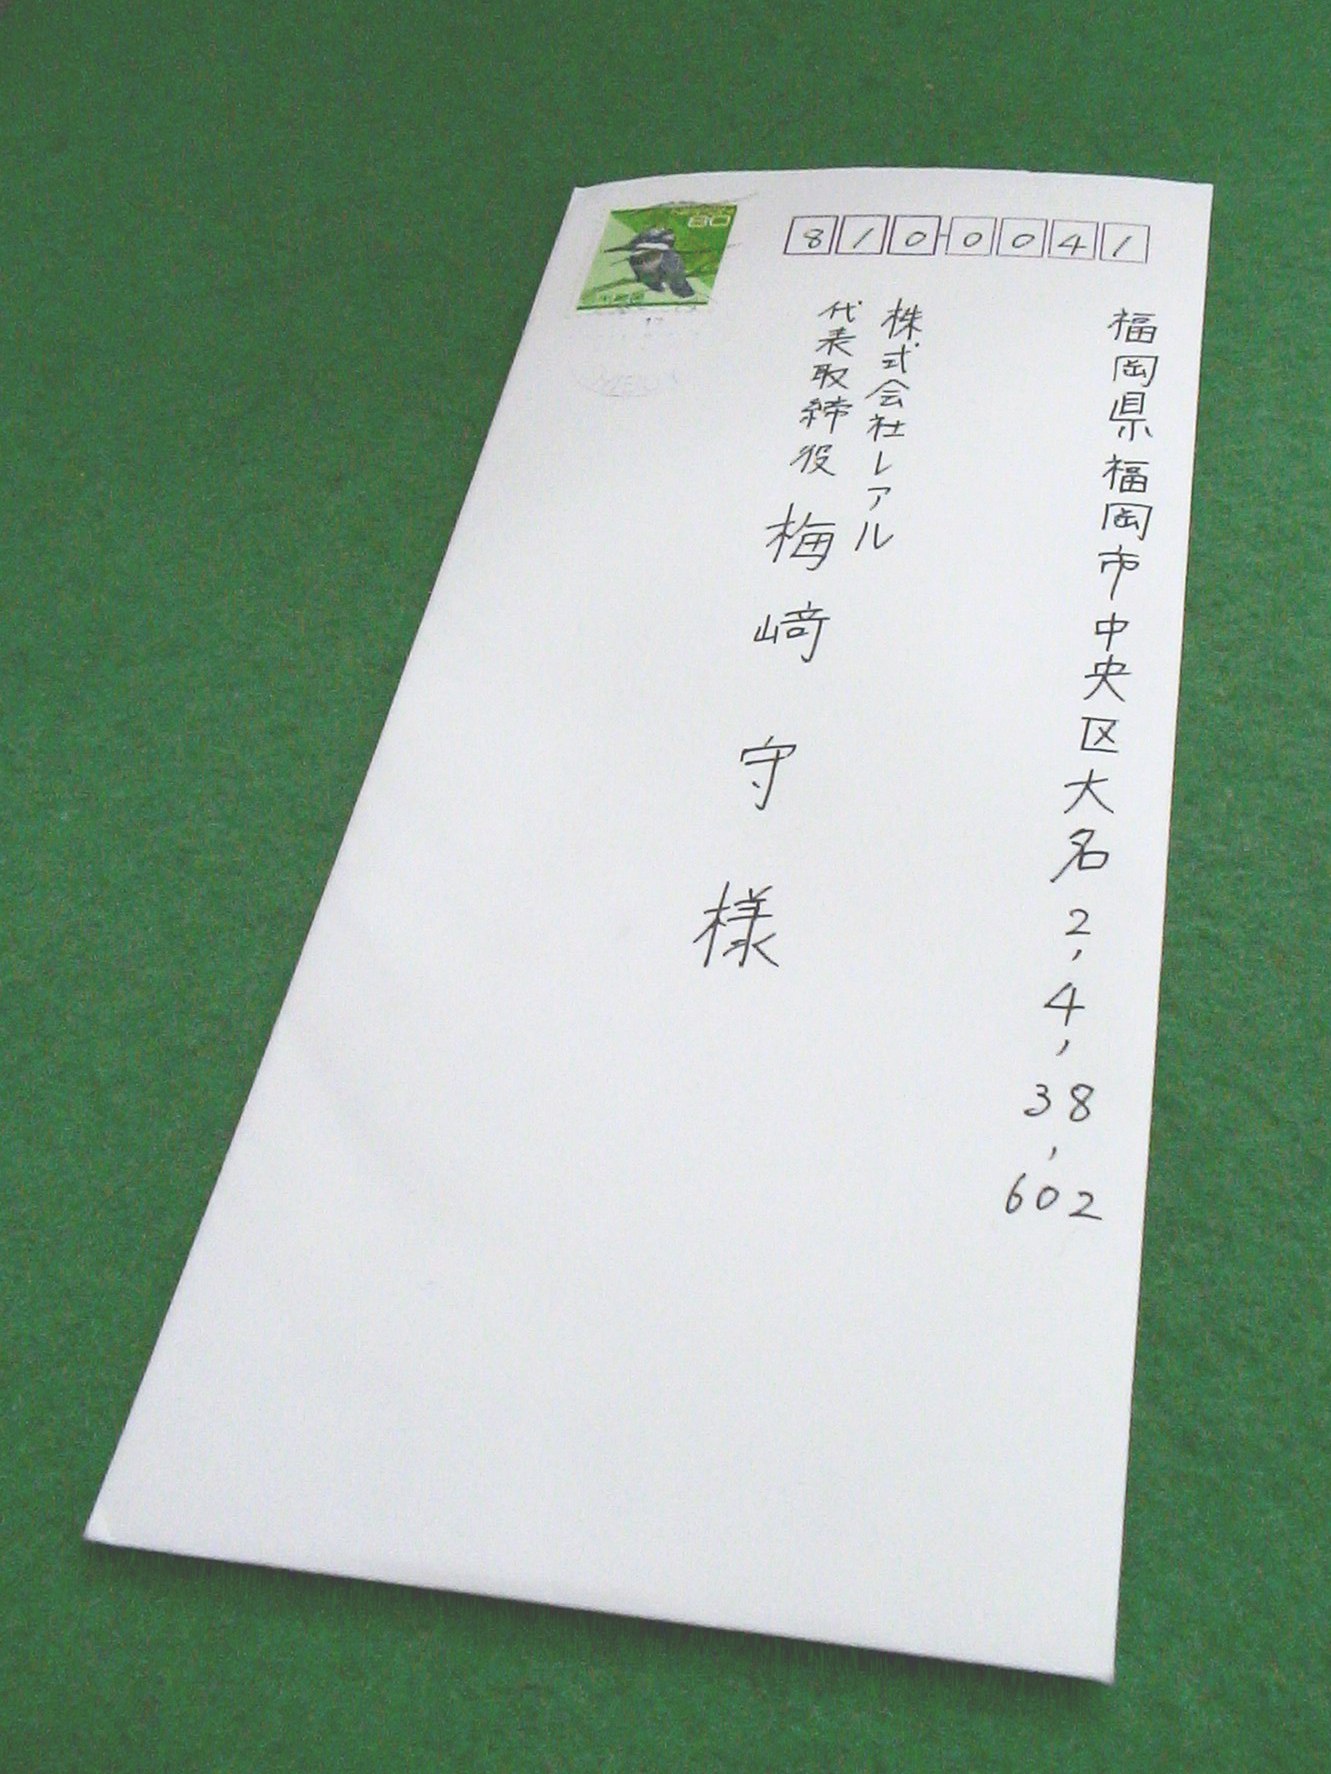 80
810-0041
福岡県福岡市中央区大名2,4,38,602
株式会社レアル
代表取締役 梅﨑 守 様